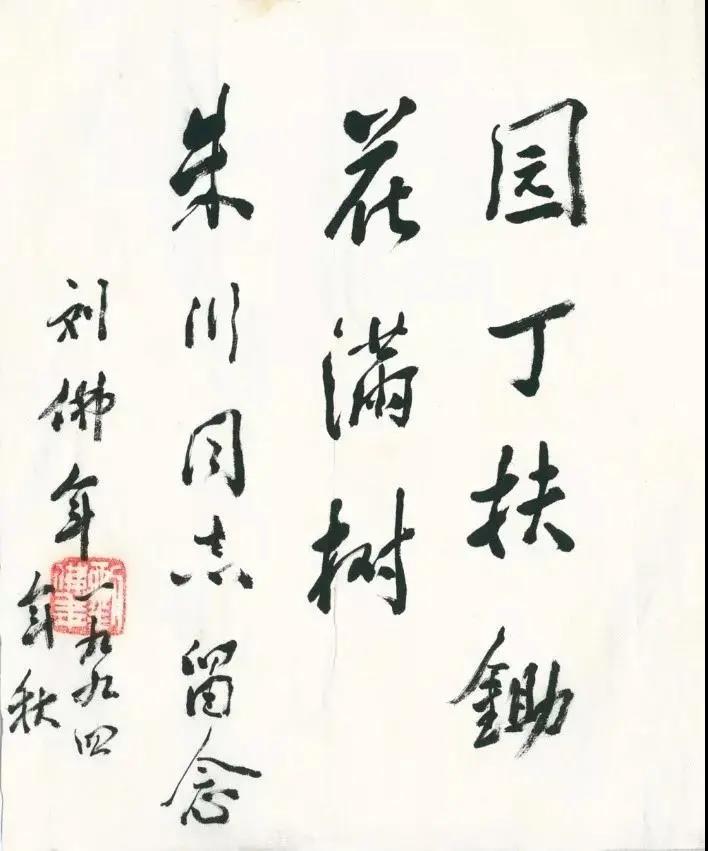 园丁扶鋤
花满树
朱川同志留念
刘佛年
一九九四
年秋
刘佛年